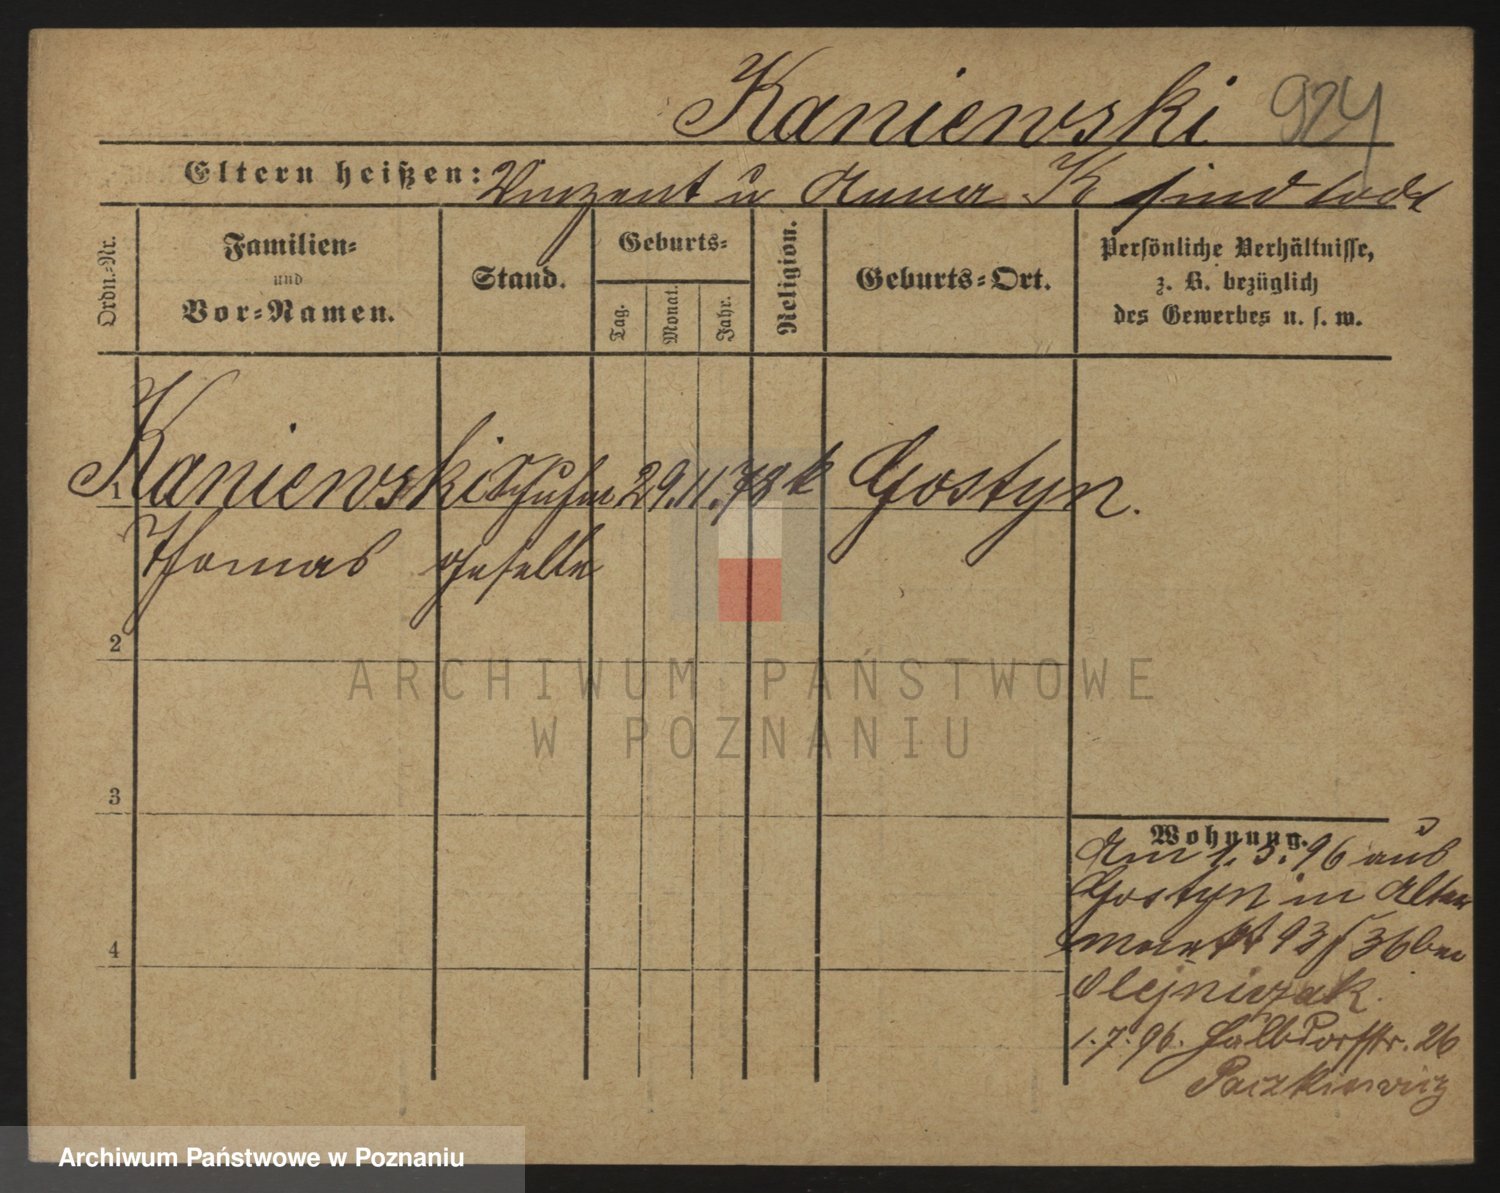 Kaniewski 924
Eltern heißen: Vinzent u Anna K sind todt
Ordn.-Nr.
Familien-
und
Vor-Namen.
Stand.
Geburts-
Tag.
Monat.
Jahr.
Religion.
Geburts-Ort.
Persönliche Verhältnisse,
z. B. bezüglich
des Gewerbes u. s. w.
1 Kaniewski Schuhm 29. 11. 78 k Gostyn.
Thomas geselle
2
3
4
Wohnung.
Am 1. 3. 96 aus
Gostyn in Alter
markt 93 / 36 bei
Olejniczak.
1. 7. 96. Halbdorfstr. 26
Paczkiewicz
ARCHIWUM PAŃSTWOWE
W POZNANIU
Archiwum Państwowe w Poznaniu